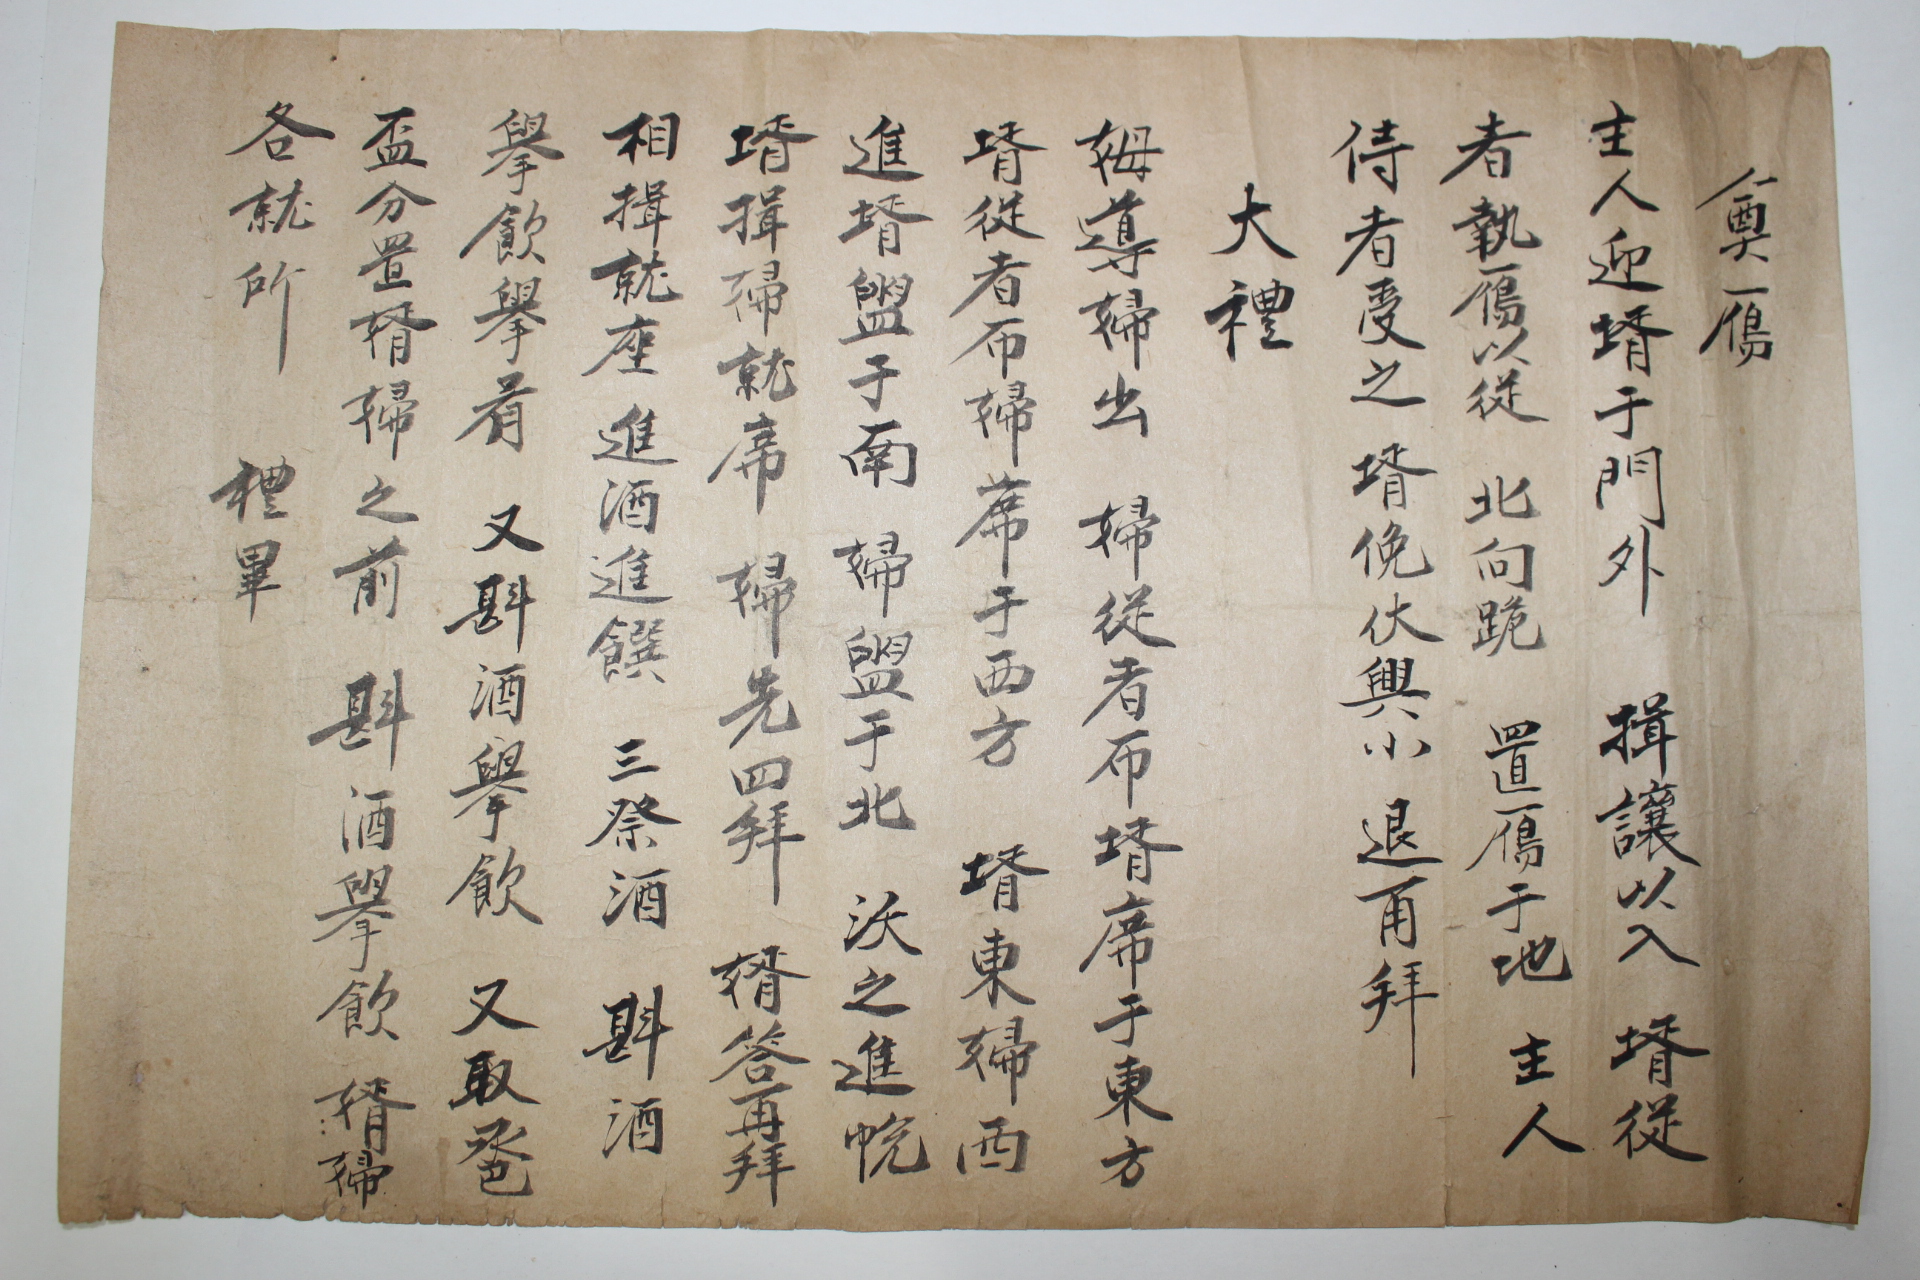 奠鴈
主人迎壻于門外 揖讓以入 壻從
者執鴈以從 北向跪 置鴈于地 主人
侍者受之 壻俛伏興小退再拜
大禮
姆導婦出 婦從者布壻席于東方
壻從者布婦席于西方 壻東婦西
進壻盥于南 婦盥于北 沃之進帨
壻揖婦就席 婦先四拜 壻答再拜
相揖就座 進酒進饌 三祭酒 斟酒
擧飮擧肴 又斟酒擧飮 又取卺
盃分置壻婦之前 斟酒擧飮 壻婦
各就所 禮畢